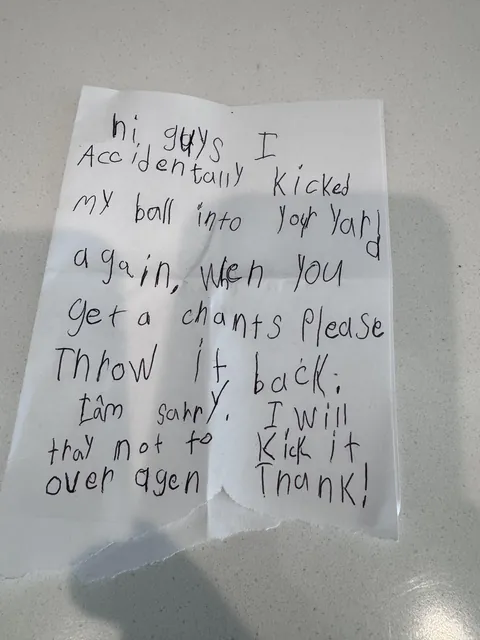 hi guys I
Accidentally kicked
my ball into your yard
again, when you
get a chants please
Throw it back.
Iâm sahry. I will
thray not to Kick it
over agen Thank!